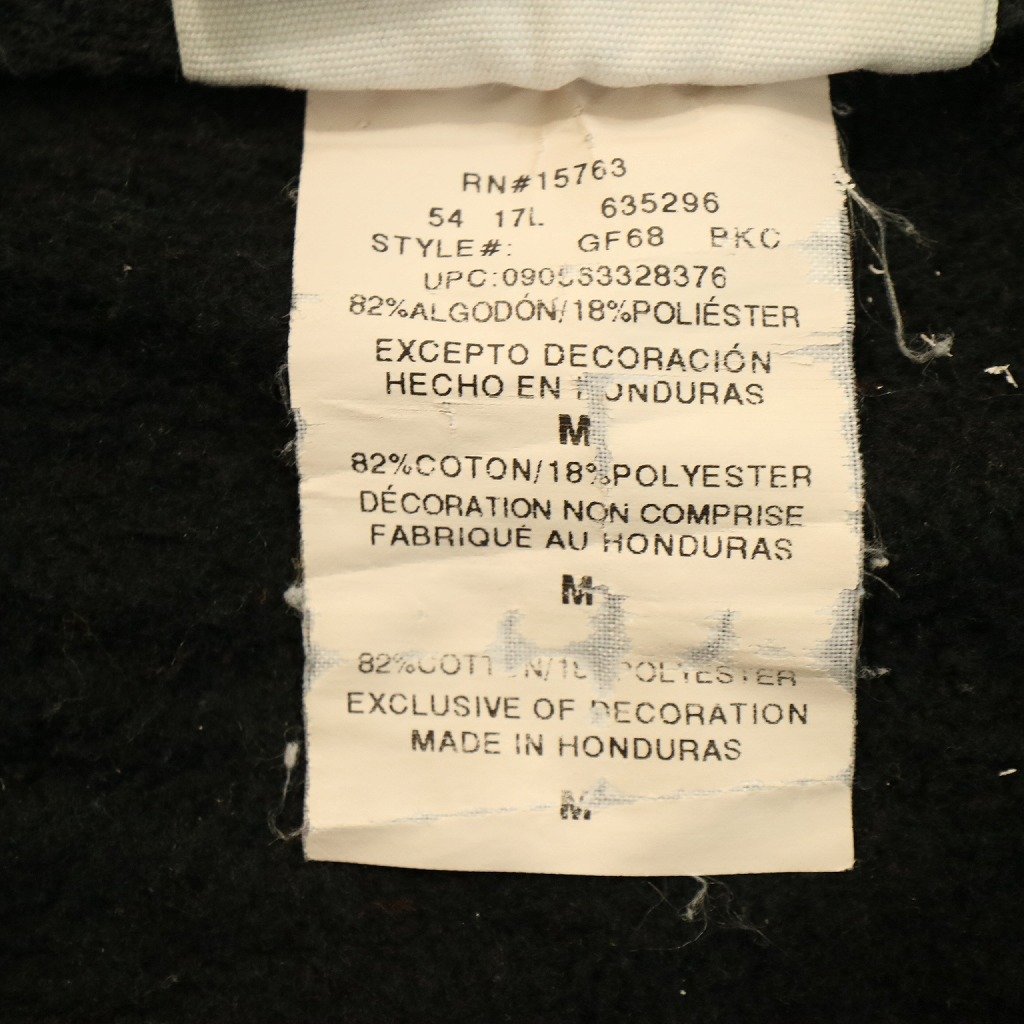 RN#15763
54 17L 635296
STYLE#: GF68 BKC
82%ALGODÓN/18%POLIÉSTER
EXCEPTO DECORACIÓN
HECHO EN HONDURAS
M
82%COTON/18%POLYESTER
DÉCORATION NON COMPRISE
FABRIQUÉ AU HONDURAS
M
82%COTTON/18%POLYESTER
EXCLUSIVE OF DECORATION
MADE IN HONDURAS
M